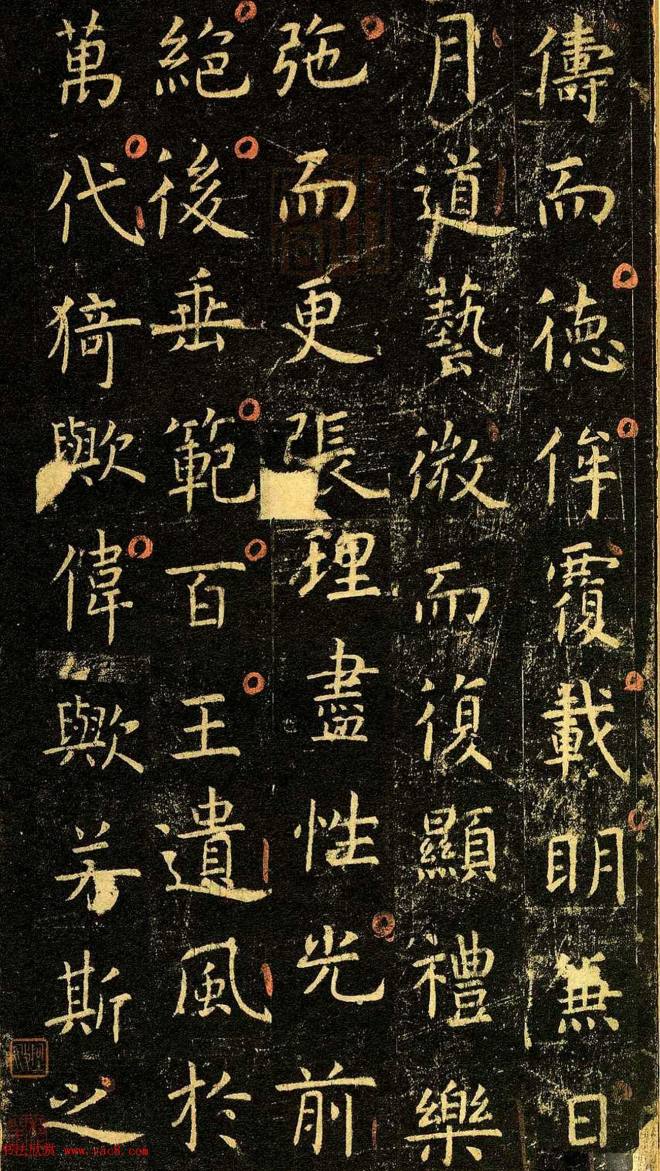 儔而德侔覆載明無日
月道藝微而復顯禮樂
弛而更張理盡性光前
絕後垂範百王遺風於
萬代猗歟偉歟若斯之
书法欣赏 www.yac8.com